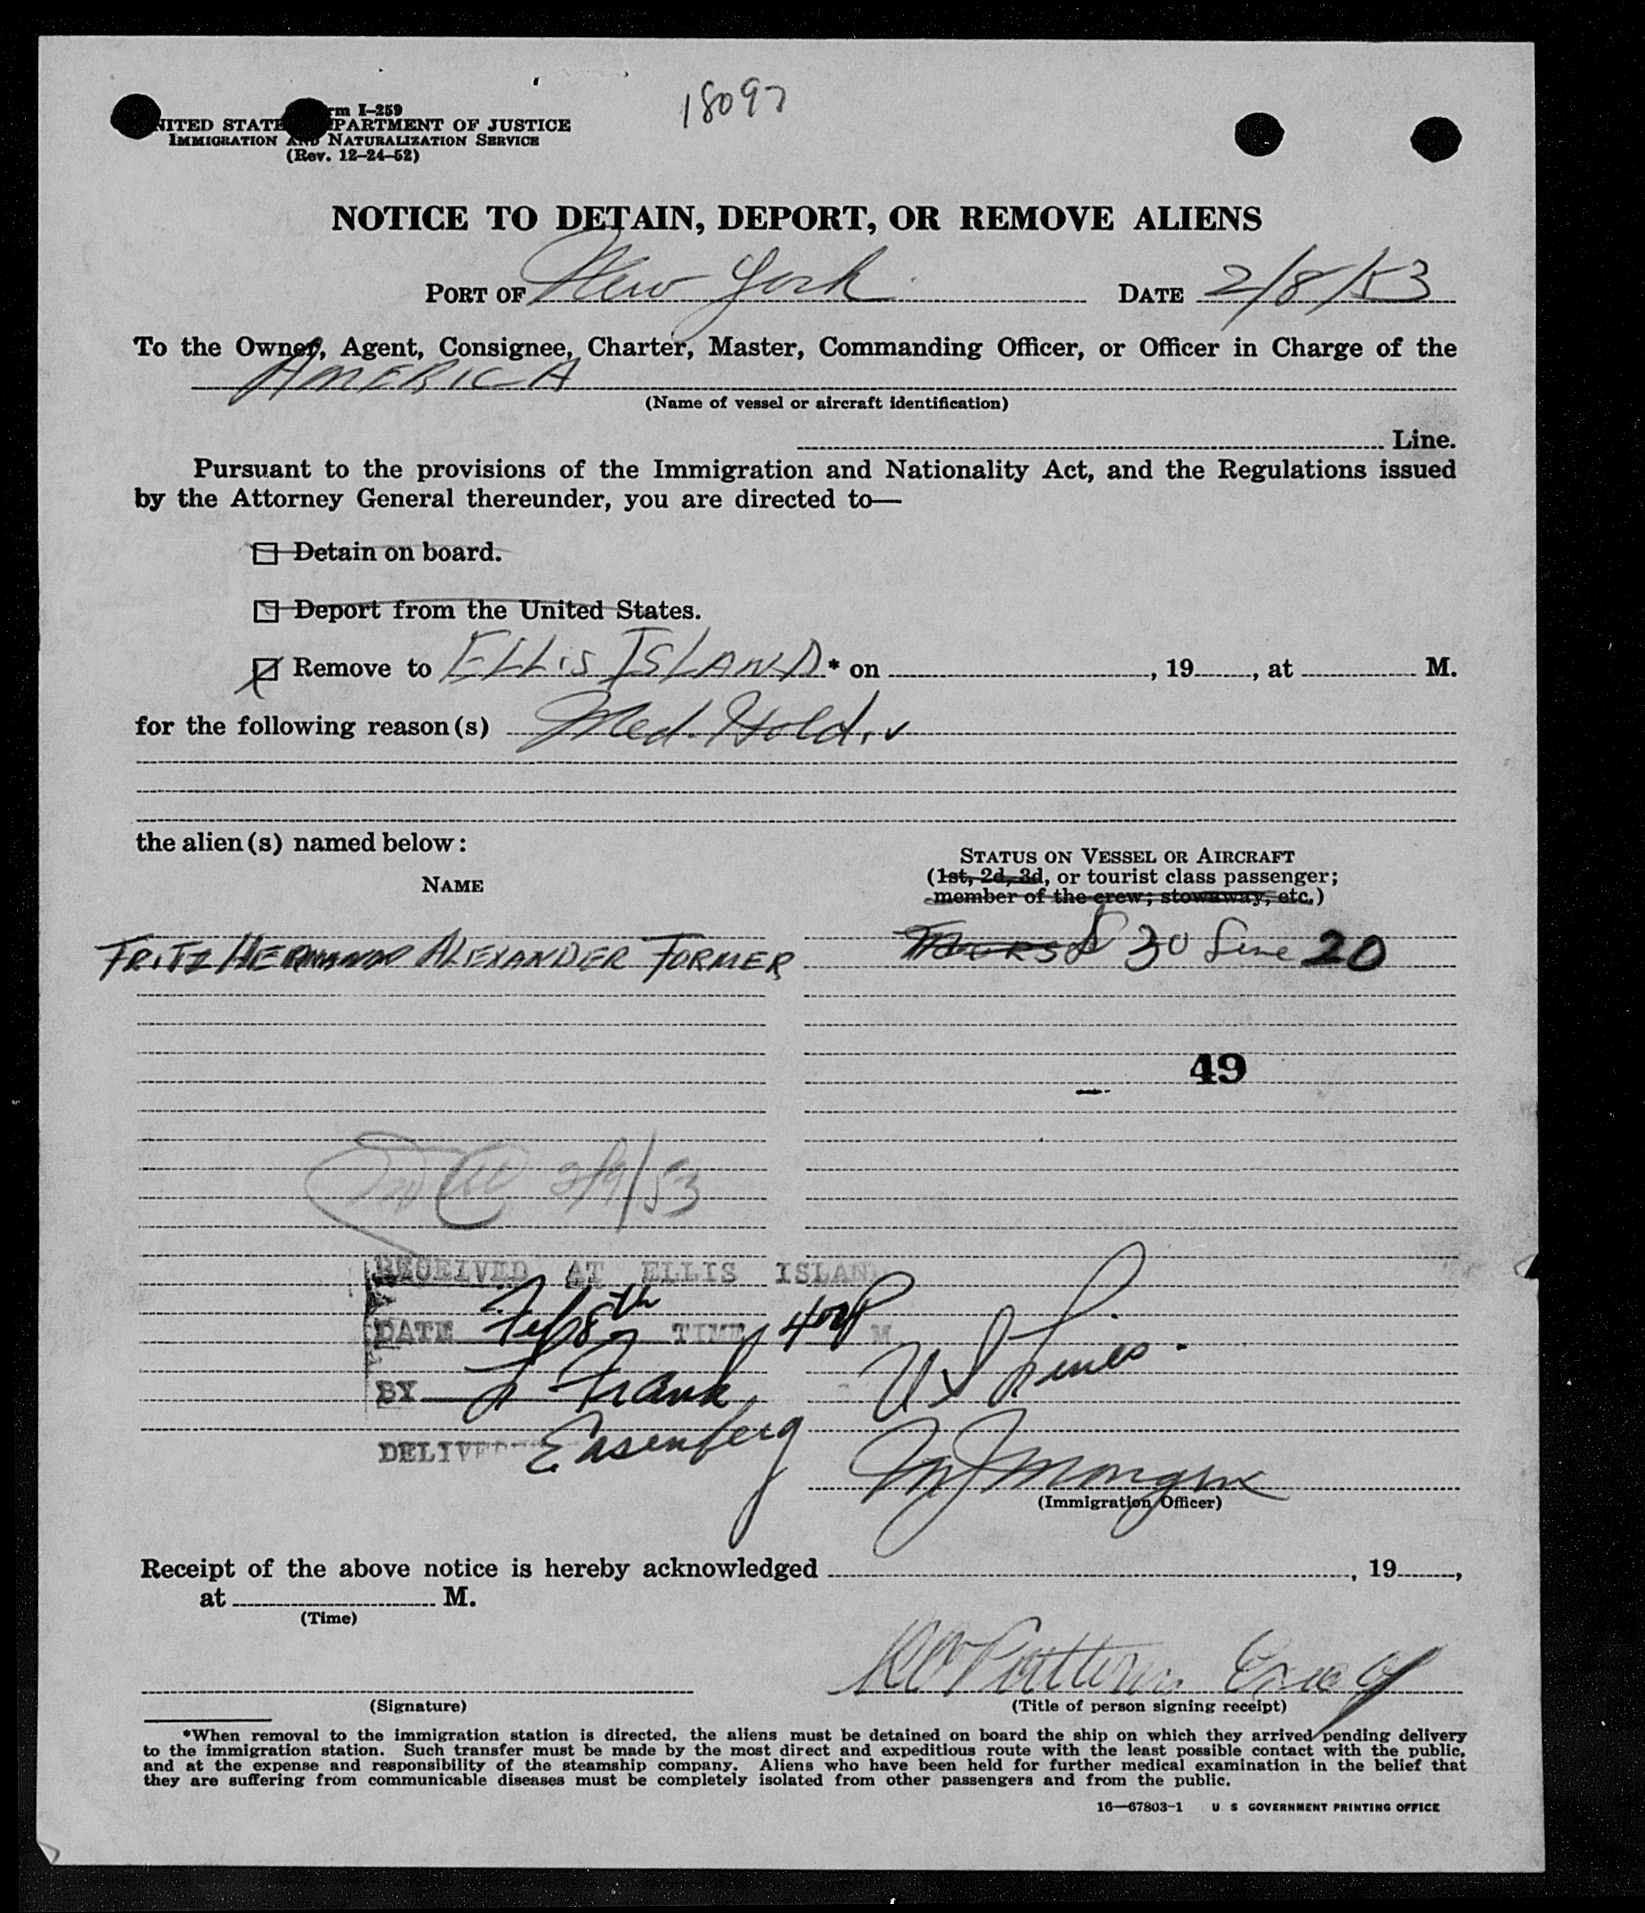 18097
rm I-259
NITED STATE PARTMENT OF JUSTICE
IMMIGRATION AND NATURALIZATION SERVICE
(Rev. 12-24-52)
NOTICE TO DETAIN, DEPORT, OR REMOVE ALIENS
PORT OF New York DATE 2/8/53
To the Owner, Agent, Consignee, Charter, Master, Commanding Officer, or Officer in Charge of the
AMERICA
(Name of vessel or aircraft identification)
Line.
Pursuant to the provisions of the Immigration and Nationality Act, and the Regulations issued
by the Attorney General thereunder, you are directed to—
Detain on board.
Deport from the United States.
Remove to ELLIS ISLAND * on , 19 , at M.
for the following reason(s) Med. Hold.
the alien(s) named below:
NAME
STATUS ON VESSEL OR AIRCRAFT
(1st, 2d, 3d, or tourist class passenger;
member of the crew; stowaway, etc.)
FRITZ HERMANN ALEXANDER FORMER
30 Line 20
49
2/9/53
RECEIVED AT ELLIS ISLAN
DATE Feb 8th TIME 400P M
BY Frank
US Lines.
DELIVE Eisenberg
(Immigration Officer)
Receipt of the above notice is hereby acknowledged , 19 ,
at M.
(Time)
(Signature)
(Title of person signing receipt)
*When removal to the immigration station is directed, the aliens must be detained on board the ship on which they arrived pending delivery
to the immigration station. Such transfer must be made by the most direct and expeditious route with the least possible contact with the public,
and at the expense and responsibility of the steamship company. Aliens who have been held for further medical examination in the belief that
they are suffering from communicable diseases must be completely isolated from other passengers and from the public.
16—67803-1 U S GOVERNMENT PRINTING OFFICE